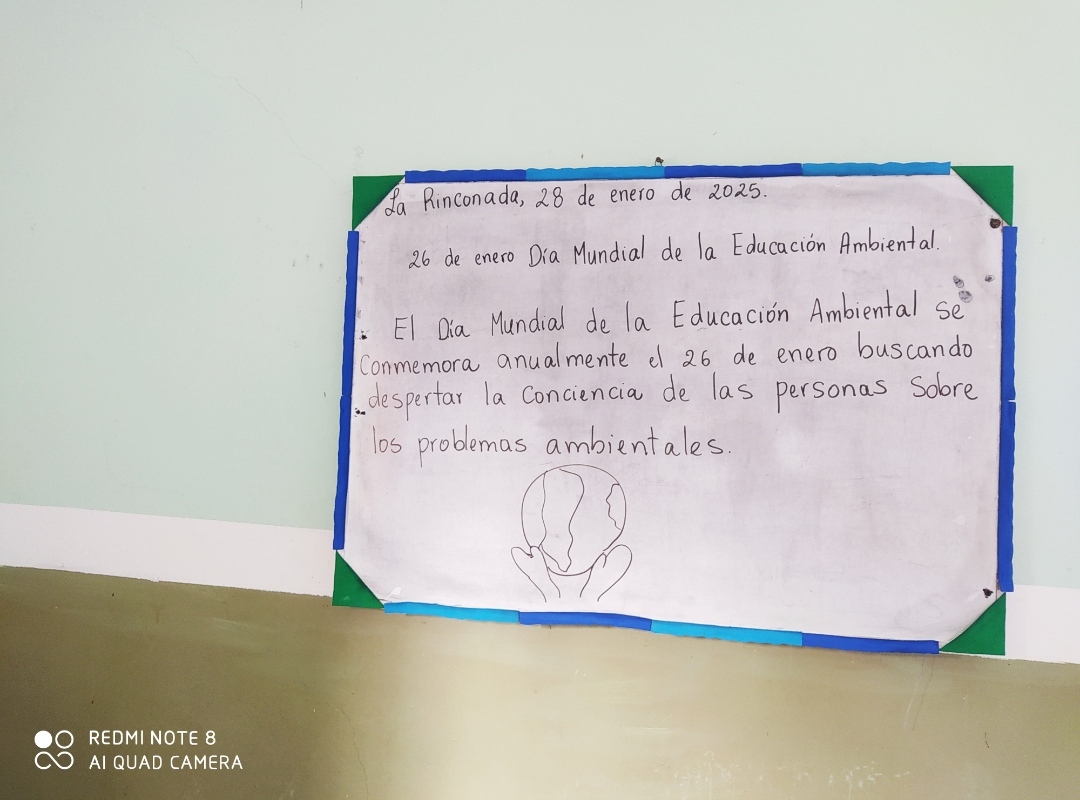 La Rinconada, 28 de enero de 2025.
26 de enero Día Mundial de la Educación Ambiental.
El Día Mundial de la Educación Ambiental se
Conmemora anualmente el 26 de enero buscando
despertar la Conciencia de las personas Sobre
los problemas ambientales.
REDMI NOTE 8
AI QUAD CAMERA